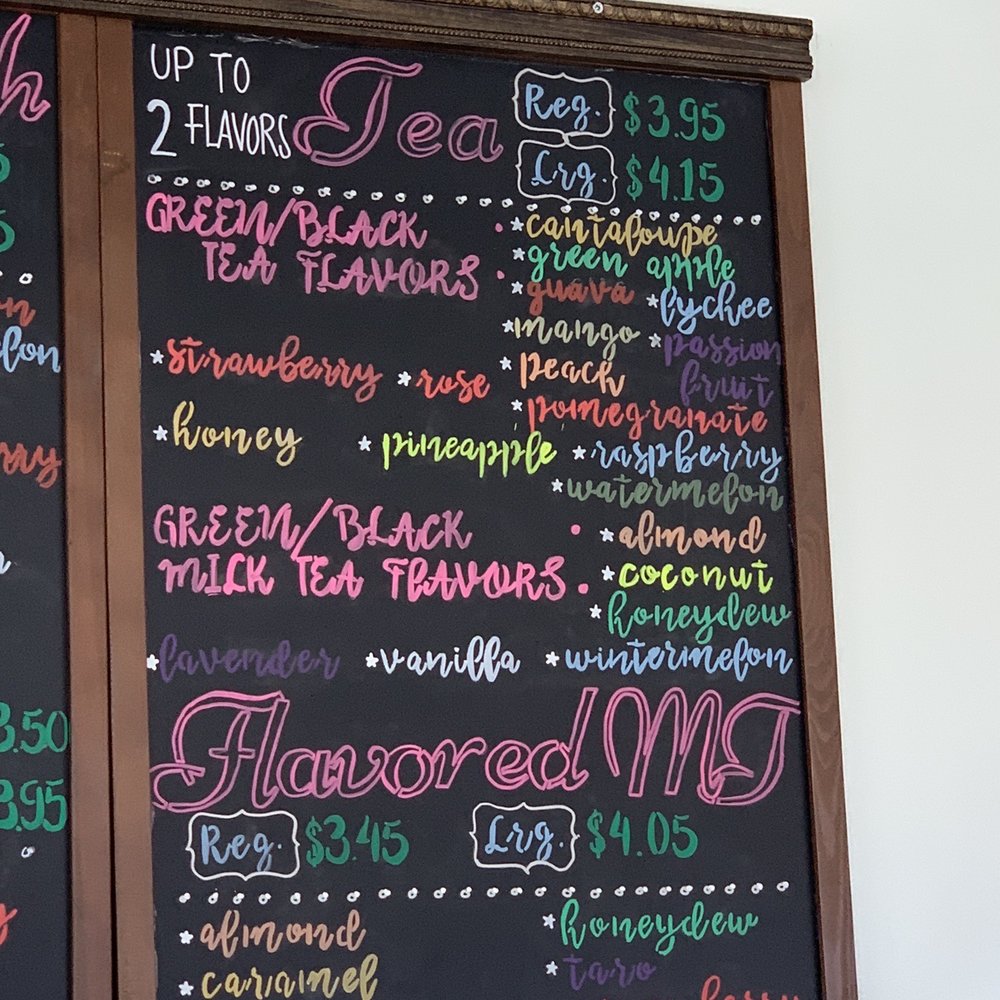 UP TO
2 FLAVORS
Tea
Reg. $3.95
Lrg. $4.15
GREEN/BLACK
TEA FLAVORS
*cantaloupe
*green apple
*guava *lychee
*mango *passion
fruit
*peach
*strawberry *rose
*pomegranate
*honey *pineapple *raspberry
*watermelon
GREEN/BLACK
MILK TEA FLAVORS
*almond
*coconut
*honeydew
*lavender *vanilla *wintermelon
Flavored MT
Reg. $3.45 Lrg. $4.05
*almond *honeydew
*caramel *taro
3.50
3.95